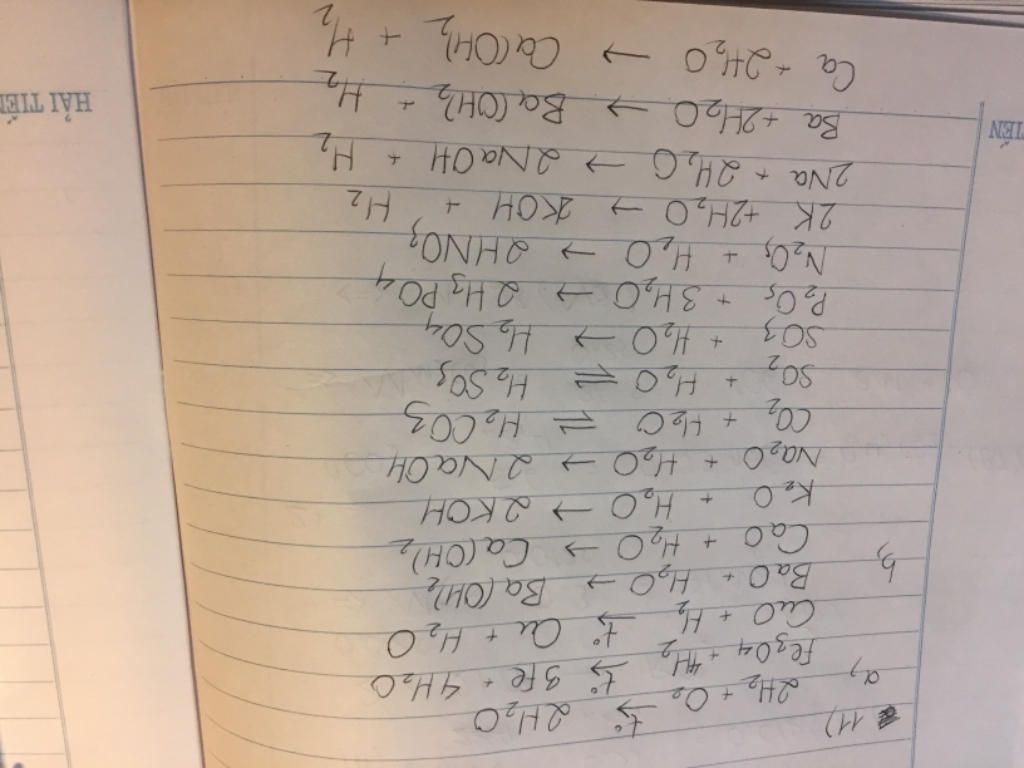 11)
a, 2H₂ + O₂ →(t°) 2H₂O
Fe₃O₄ + 4H₂ →(t°) 3Fe + 4H₂O
CuO + H₂ →(t°) Cu + H₂O
b, BaO + H₂O → Ba(OH)₂
CaO + H₂O → Ca(OH)₂
K₂O + H₂O → 2KOH
Na₂O + H₂O → 2NaOH
CO₂ + H₂O ⇌ H₂CO₃
SO₂ + H₂O ⇌ H₂SO₃
SO₃ + H₂O → H₂SO₄
P₂O₅ + 3H₂O → 2H₃PO₄
N₂O₅ + H₂O → 2HNO₃
2K + 2H₂O → 2KOH + H₂
2Na + 2H₂O → 2NaOH + H₂
Ba + 2H₂O → Ba(OH)₂ + H₂
Ca + 2H₂O → Ca(OH)₂ + H₂
IẾN
HẢI TIẾN